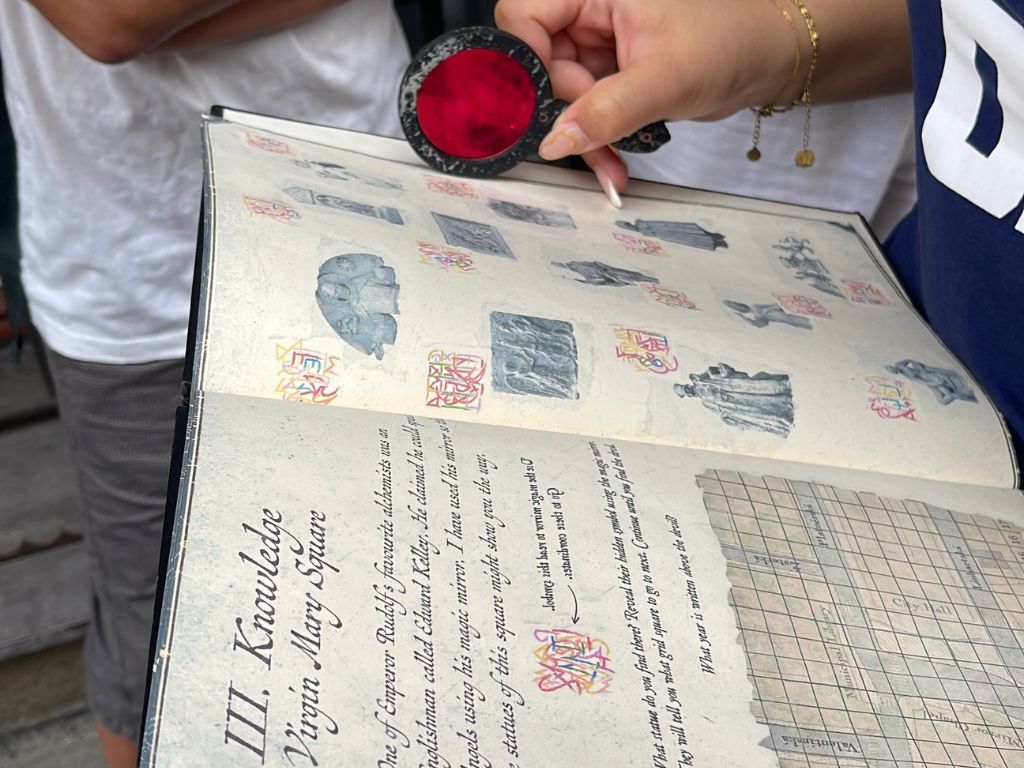 III. Knowledge
Virgin Mary Square
One of Emperor Rudolf's favourite alchemists was an
Englishman called Edward Kelley. He claimed he could
angels using his magic mirror. I have used his mirror so
statues of this square might show you the way.
Use the magic mirror to read this symbol.
Go to these coordinates.
What statue do you find there? Reveal their hidden symbol using the magic mirror.
They will tell you what grid square to go to next. Continue until you find the devil.
What year is written above the devil?
Žatecká
City Hall
Municipal Library
Valentinská
Mirror Chapel